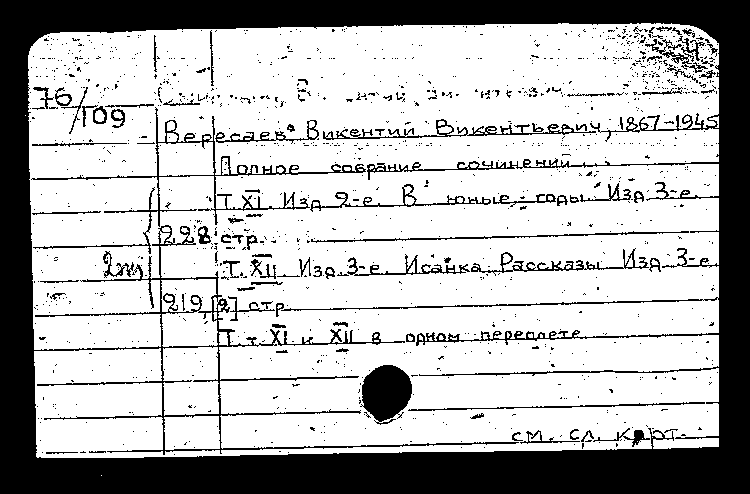 4
76/109
Вересаев, Викентий Викентьевич, 1867-1945
Полное собрание сочинений...
Т. XI. Изд 2-е. В юные годы Изд 3-е.
228 стр.
2 т
Т. XII. Изд. 3-е. Исанка. Рассказы Изд 3-е.
219, [2] стр
Т. т XI и XII в одном переплете
см. сл. карт.